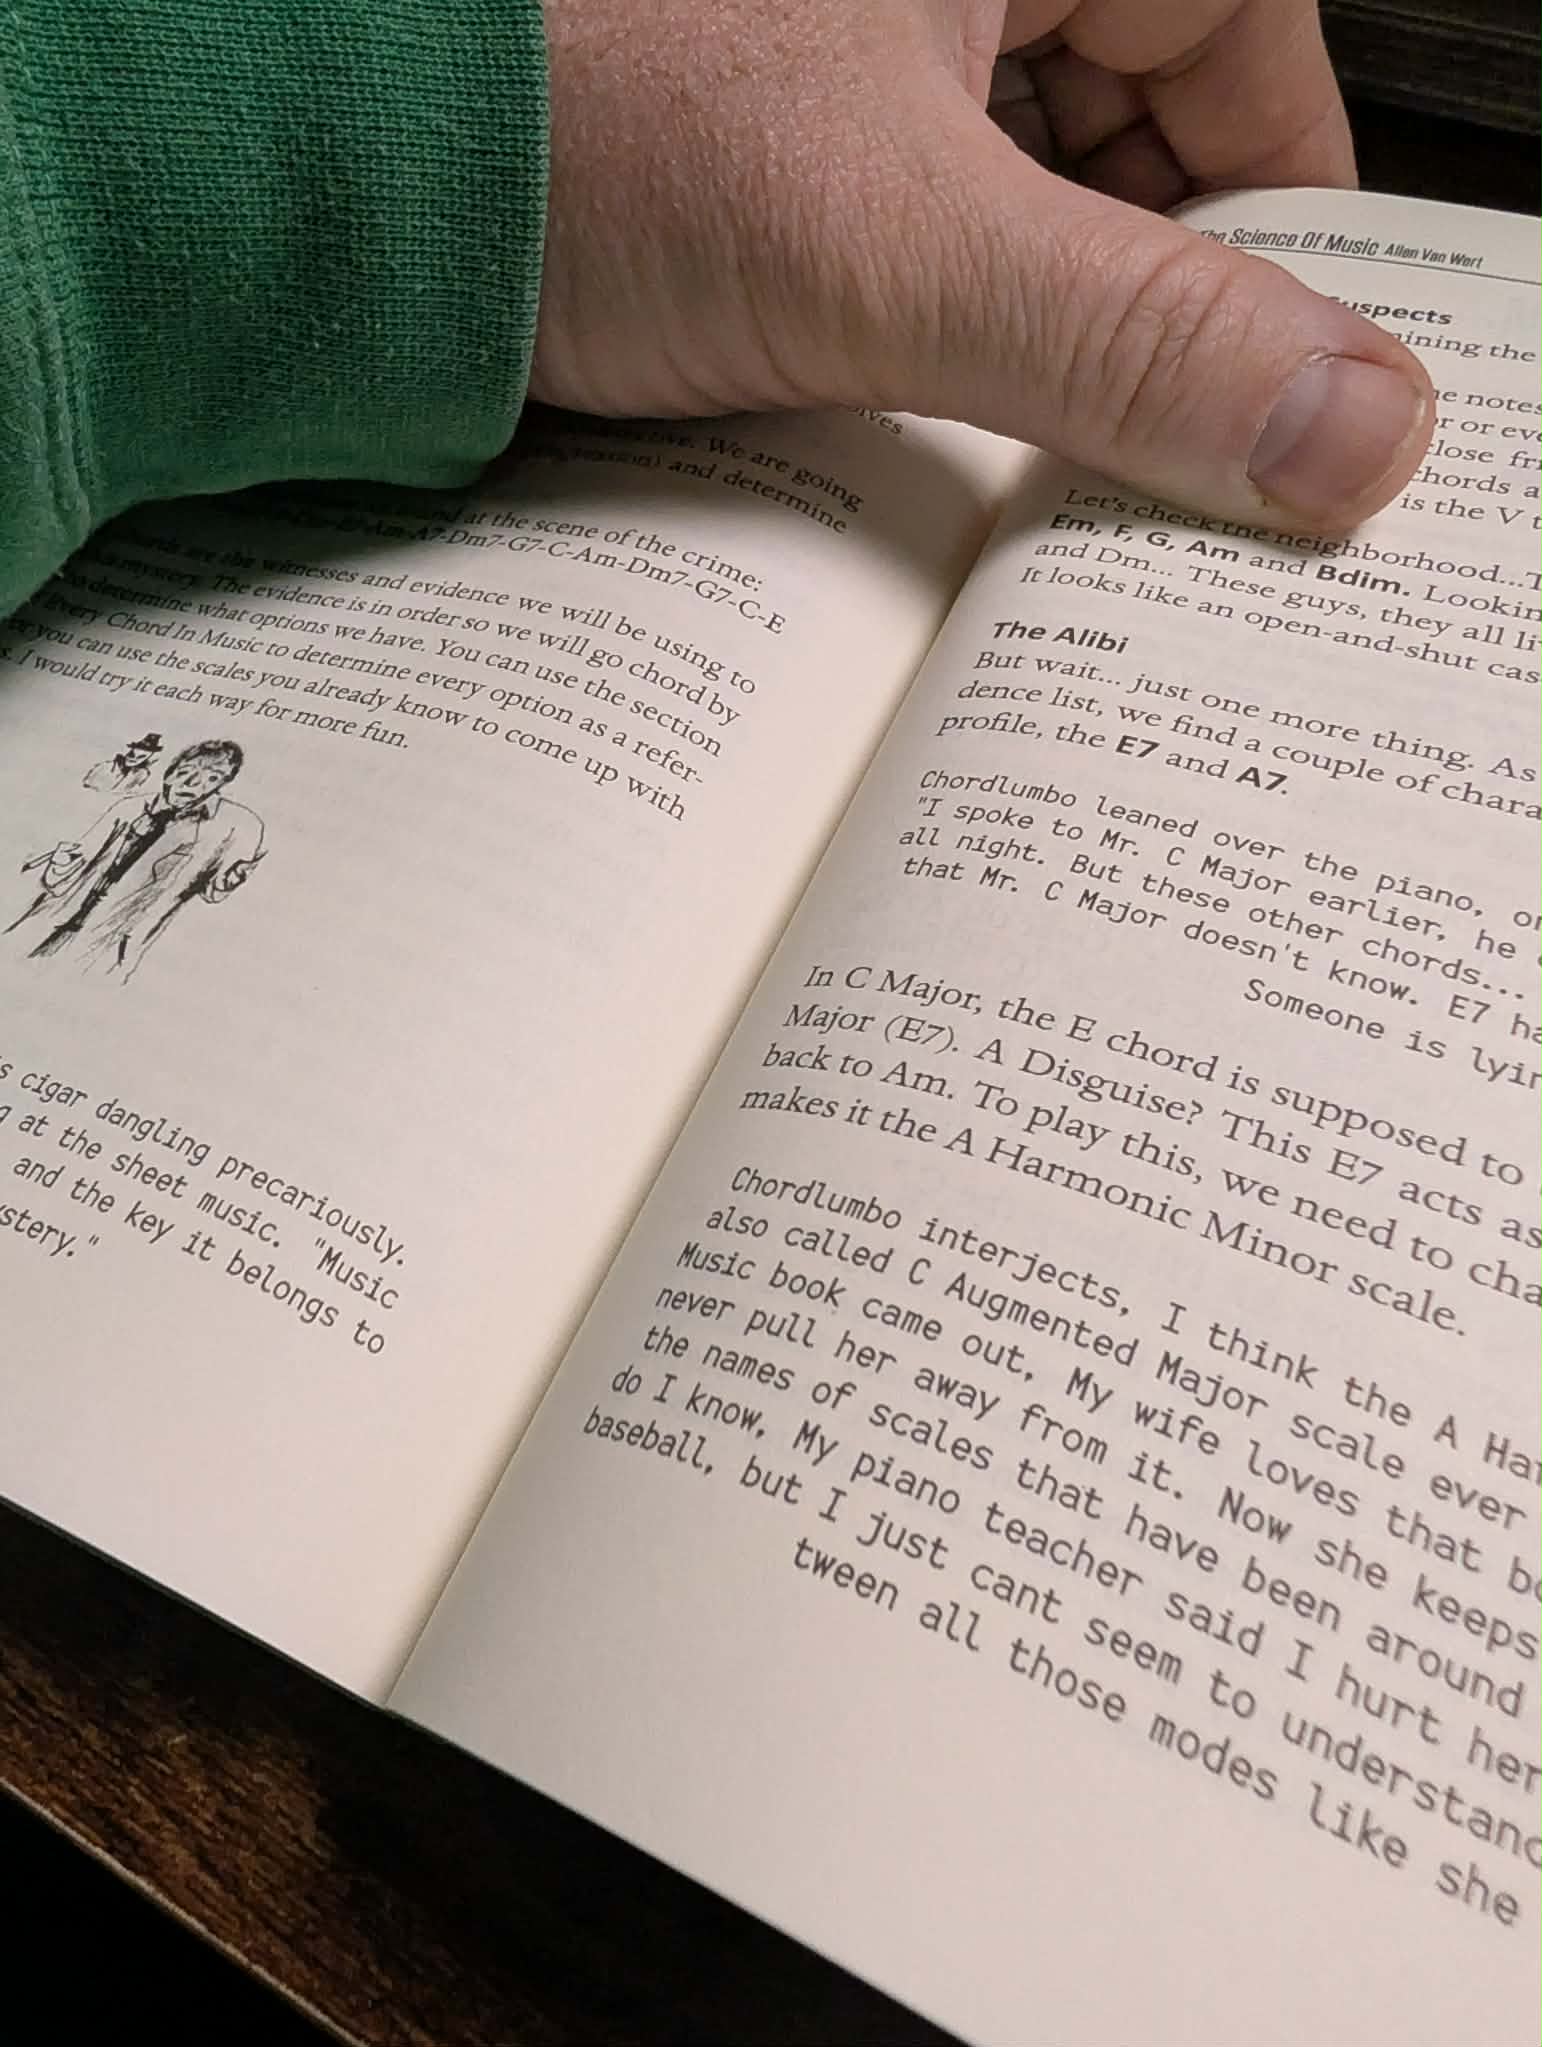 olves
We are going
and determine
at the scene of the crime:
Am-A7-Dm7-G7-C-Am-Dm7-G7-C-E
are the witnesses and evidence we will be using to
mystery. The evidence is in order so we will go chord by
determine what options we have. You can use the section
Every Chord In Music to determine every option as a refer-
or you can use the scales you already know to come up with
s. I would try it each way for more fun.
s cigar dangling precariously.
g at the sheet music. "Music
and the key it belongs to
ystery."
The Science Of Music Allen Van Wert
uspects
ining the
he notes
or or eve
close fri
chords a
is the V t
Let's check the neighborhood...T
Em, F, G, Am and Bdim. Lookin
and Dm... These guys, they all li
It looks like an open-and-shut cas
The Alibi
But wait... just one more thing. As
dence list, we find a couple of chara
profile, the E7 and A7.
Chordlumbo leaned over the piano, or
"I spoke to Mr. C Major earlier, he
all night. But these other chords...
that Mr. C Major doesn't know. E7 ha
Someone is lyin
In C Major, the E chord is supposed to
Major (E7). A Disguise? This E7 acts as
back to Am. To play this, we need to cha
makes it the A Harmonic Minor scale.
Chordlumbo interjects, I think the A Har
also called C Augmented Major scale ever
Music book came out, My wife loves that bo
never pull her away from it. Now she keeps
the names of scales that have been around
do I know, My piano teacher said I hurt her
baseball, but I just cant seem to understand
tween all those modes like she